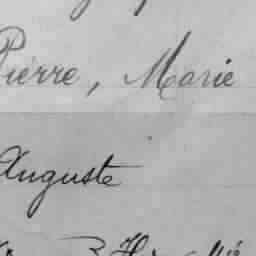 Pierre, Marie
Auguste